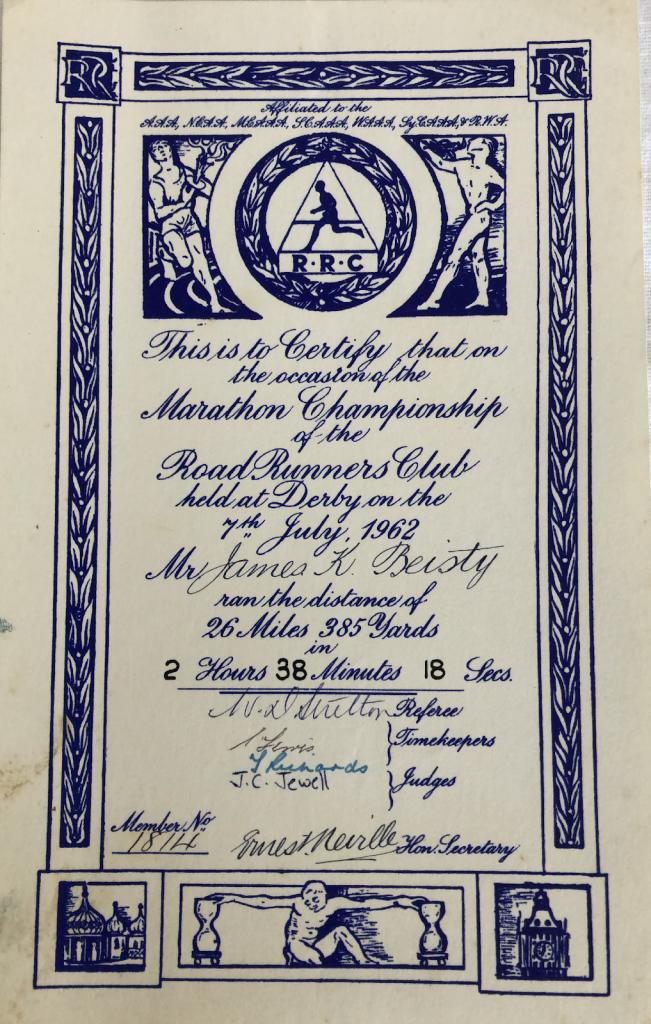 RR RR
Affiliated to the
A.A.A., N.C.A.A., M.C.A.A.A., S.C.A.A.A., W.A.A.A., & R.W.A.
R·R·C
This is to Certify that on
the occasion of the
Marathon Championship
of the
Road Runners Club
held at Derby on the
7th July, 1962
Mr James K. Beisty
ran the distance of
26 Miles 385 Yards
in
2 Hours 38 Minutes 18 Secs.
Referee
Timekeepers
Richards
J.C. Jewell Judges
Member No.
Ernest Neville Hon. Secretary